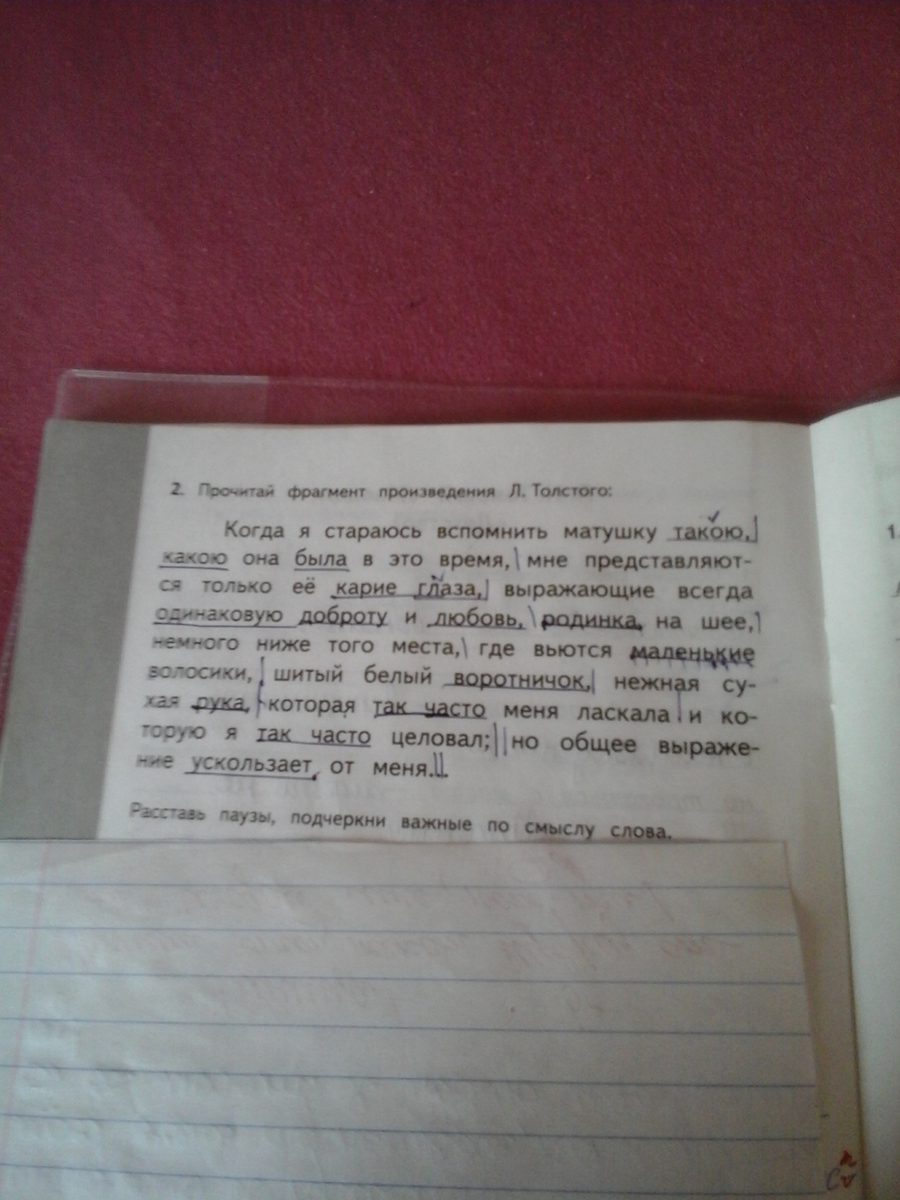 2. Прочитай фрагмент произведения Л. Толстого:
Когда я стараюсь вспомнить матушку такою,
какою она была в это время, мне представляют-
ся только её карие глаза, выражающие всегда
одинаковую доброту и любовь, родинка на шее,
немного ниже того места, где вьются маленькие
волосики, шитый белый воротничок, нежная су-
хая рука, которая так часто меня ласкала и ко-
торую я так часто целовал; но общее выраже-
ние ускользает от меня.
Расставь паузы, подчеркни важные по смыслу слова.
1.